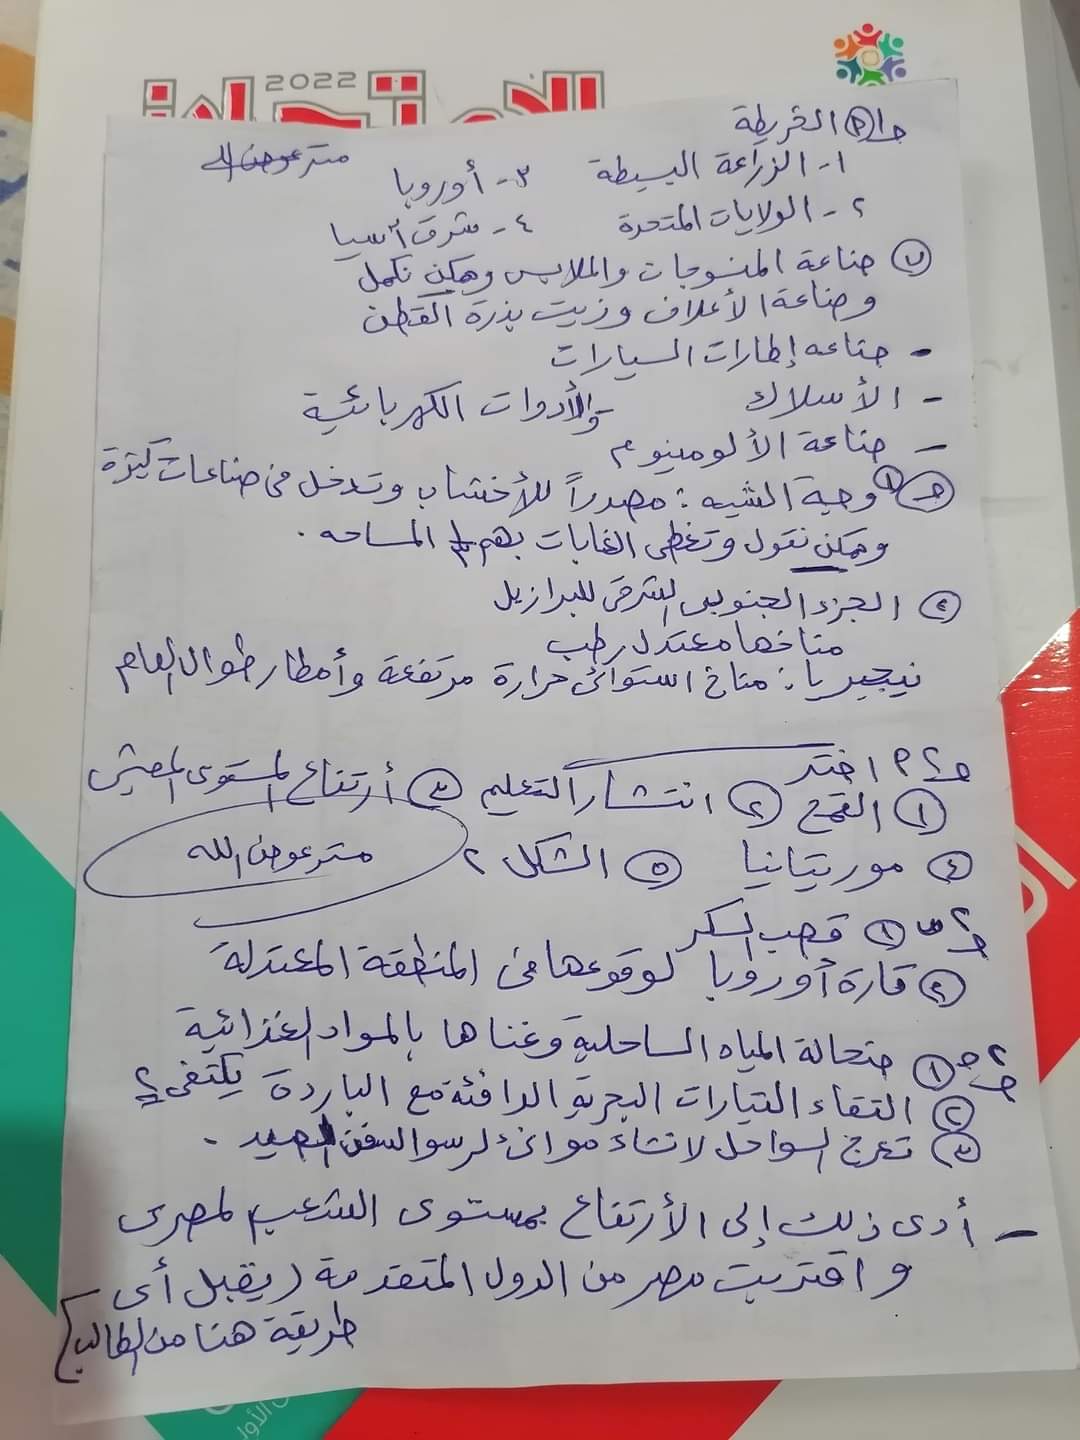 2022
الامتحان
ج١ (أ) الخريطة
مستر عوض الله
١- الزراعة البسيطة ٣- أوروبا
٢- الولايات المتحدة ٤- شرق آسيا
(ب) صناعة المنسوجات والملابس ويمكن نكمل
وصناعة الأعلاف وزيت بذرة القطن
- صناعه إطارات السيارات
- الأسلاك والأدوات الكهربائية
- صناعة الألومنيوم
(ج) ١ وجه الشبه : مصدراً للأخشاب وتدخل فى صناعات كثيرة
ويمكن نقول وتغطى الغابات بهم المساحه .
(٢) الجزء الجنوبى الشرقى للبرازيل
مناخها معتدل رطب
نيجيريا : مناخ استوائى حرارة مرتفعة وأمطار طوال العام
ج٢ اختر
(١) القمح (٢) انتشار التعليم (٣) أرتفاع المستوى المعيشى
(٤) موريتانيا (٥) الشكل ٢
مستر عوض الله
ج٣ (١) قصب السكر
(٢) قارة أوروبا لوقوعها فى المنطقة المعتدلة
(١) ضحالة المياه الساحلية وغناها بالمواد الغذائية
(٢) التقاء التيارات البحرية الدافئة مع الباردة يكتفى ٢
(٣) تعرج السواحل لانشاء موانئ لرسو السفن الصيد .
- أدى ذلك إلى الأرتفاع بمستوى الشعب المصرى
واقتربت مصر من الدول المتقدمة (يقبل أى
طريقة هنا من الطالب)